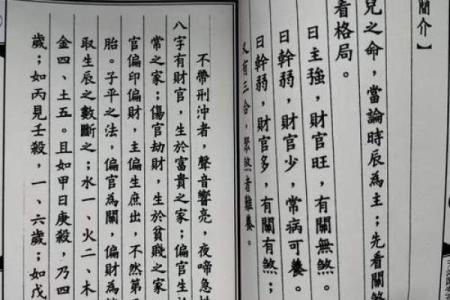 簡介】
兒之命，當論時辰為主；先看關
看格局。
日主強，財官旺，有關無煞；
日幹弱，財官少，常病可養。
日幹弱，財官多，有關有煞；
又有三合，聚煞者難養。
不帶刑沖者，聲音響亮，夜啼急性
八字有財官，生於富貴之家；偏官生
常之家；傷官劫財，生於貧賤之家
官偏印偏財，主偏生庶出，不然第
胎。子平之法，偏官為關，偏財為
取生辰之數斷之；水一、火二、木
金四、土五。且如甲日庚殺，乃四
歲；如丙見壬殺，一、六歲；如戊